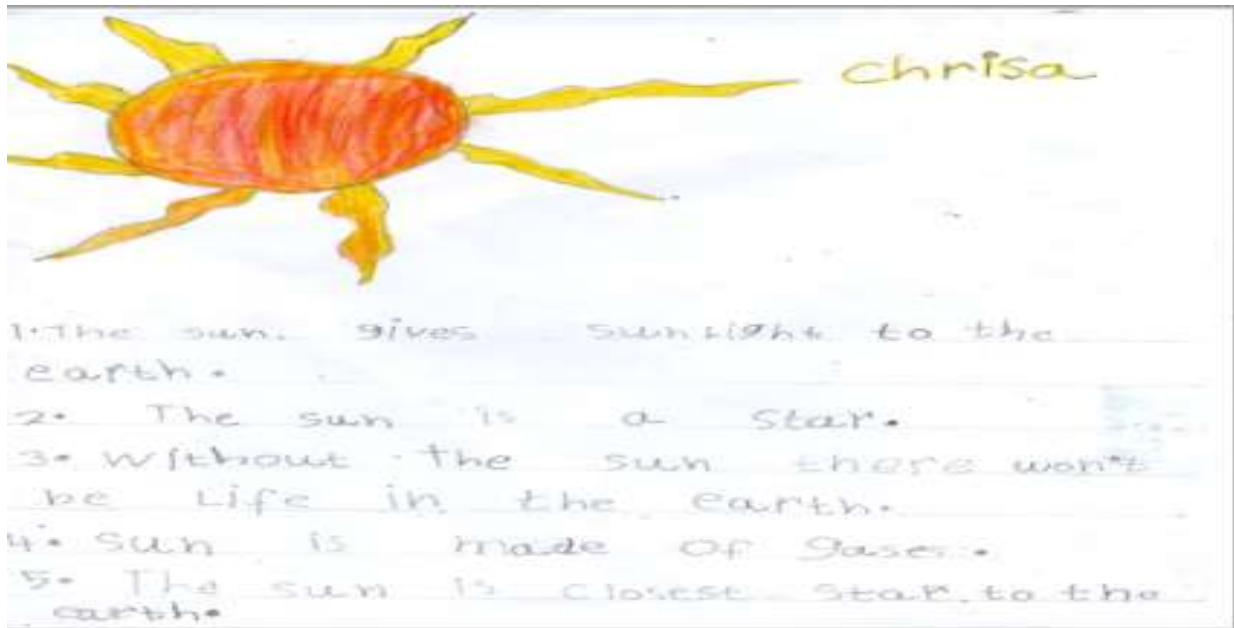 Chrisa
1. The sun. gives sunlight to the
earth.
2. The sun is a star.
3. Without the sun there won't
be Life in the earth.
4. Sun is made of gases.
5. The sun is closest star to the
earth.